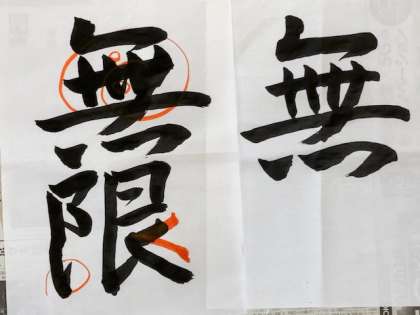 無限
無